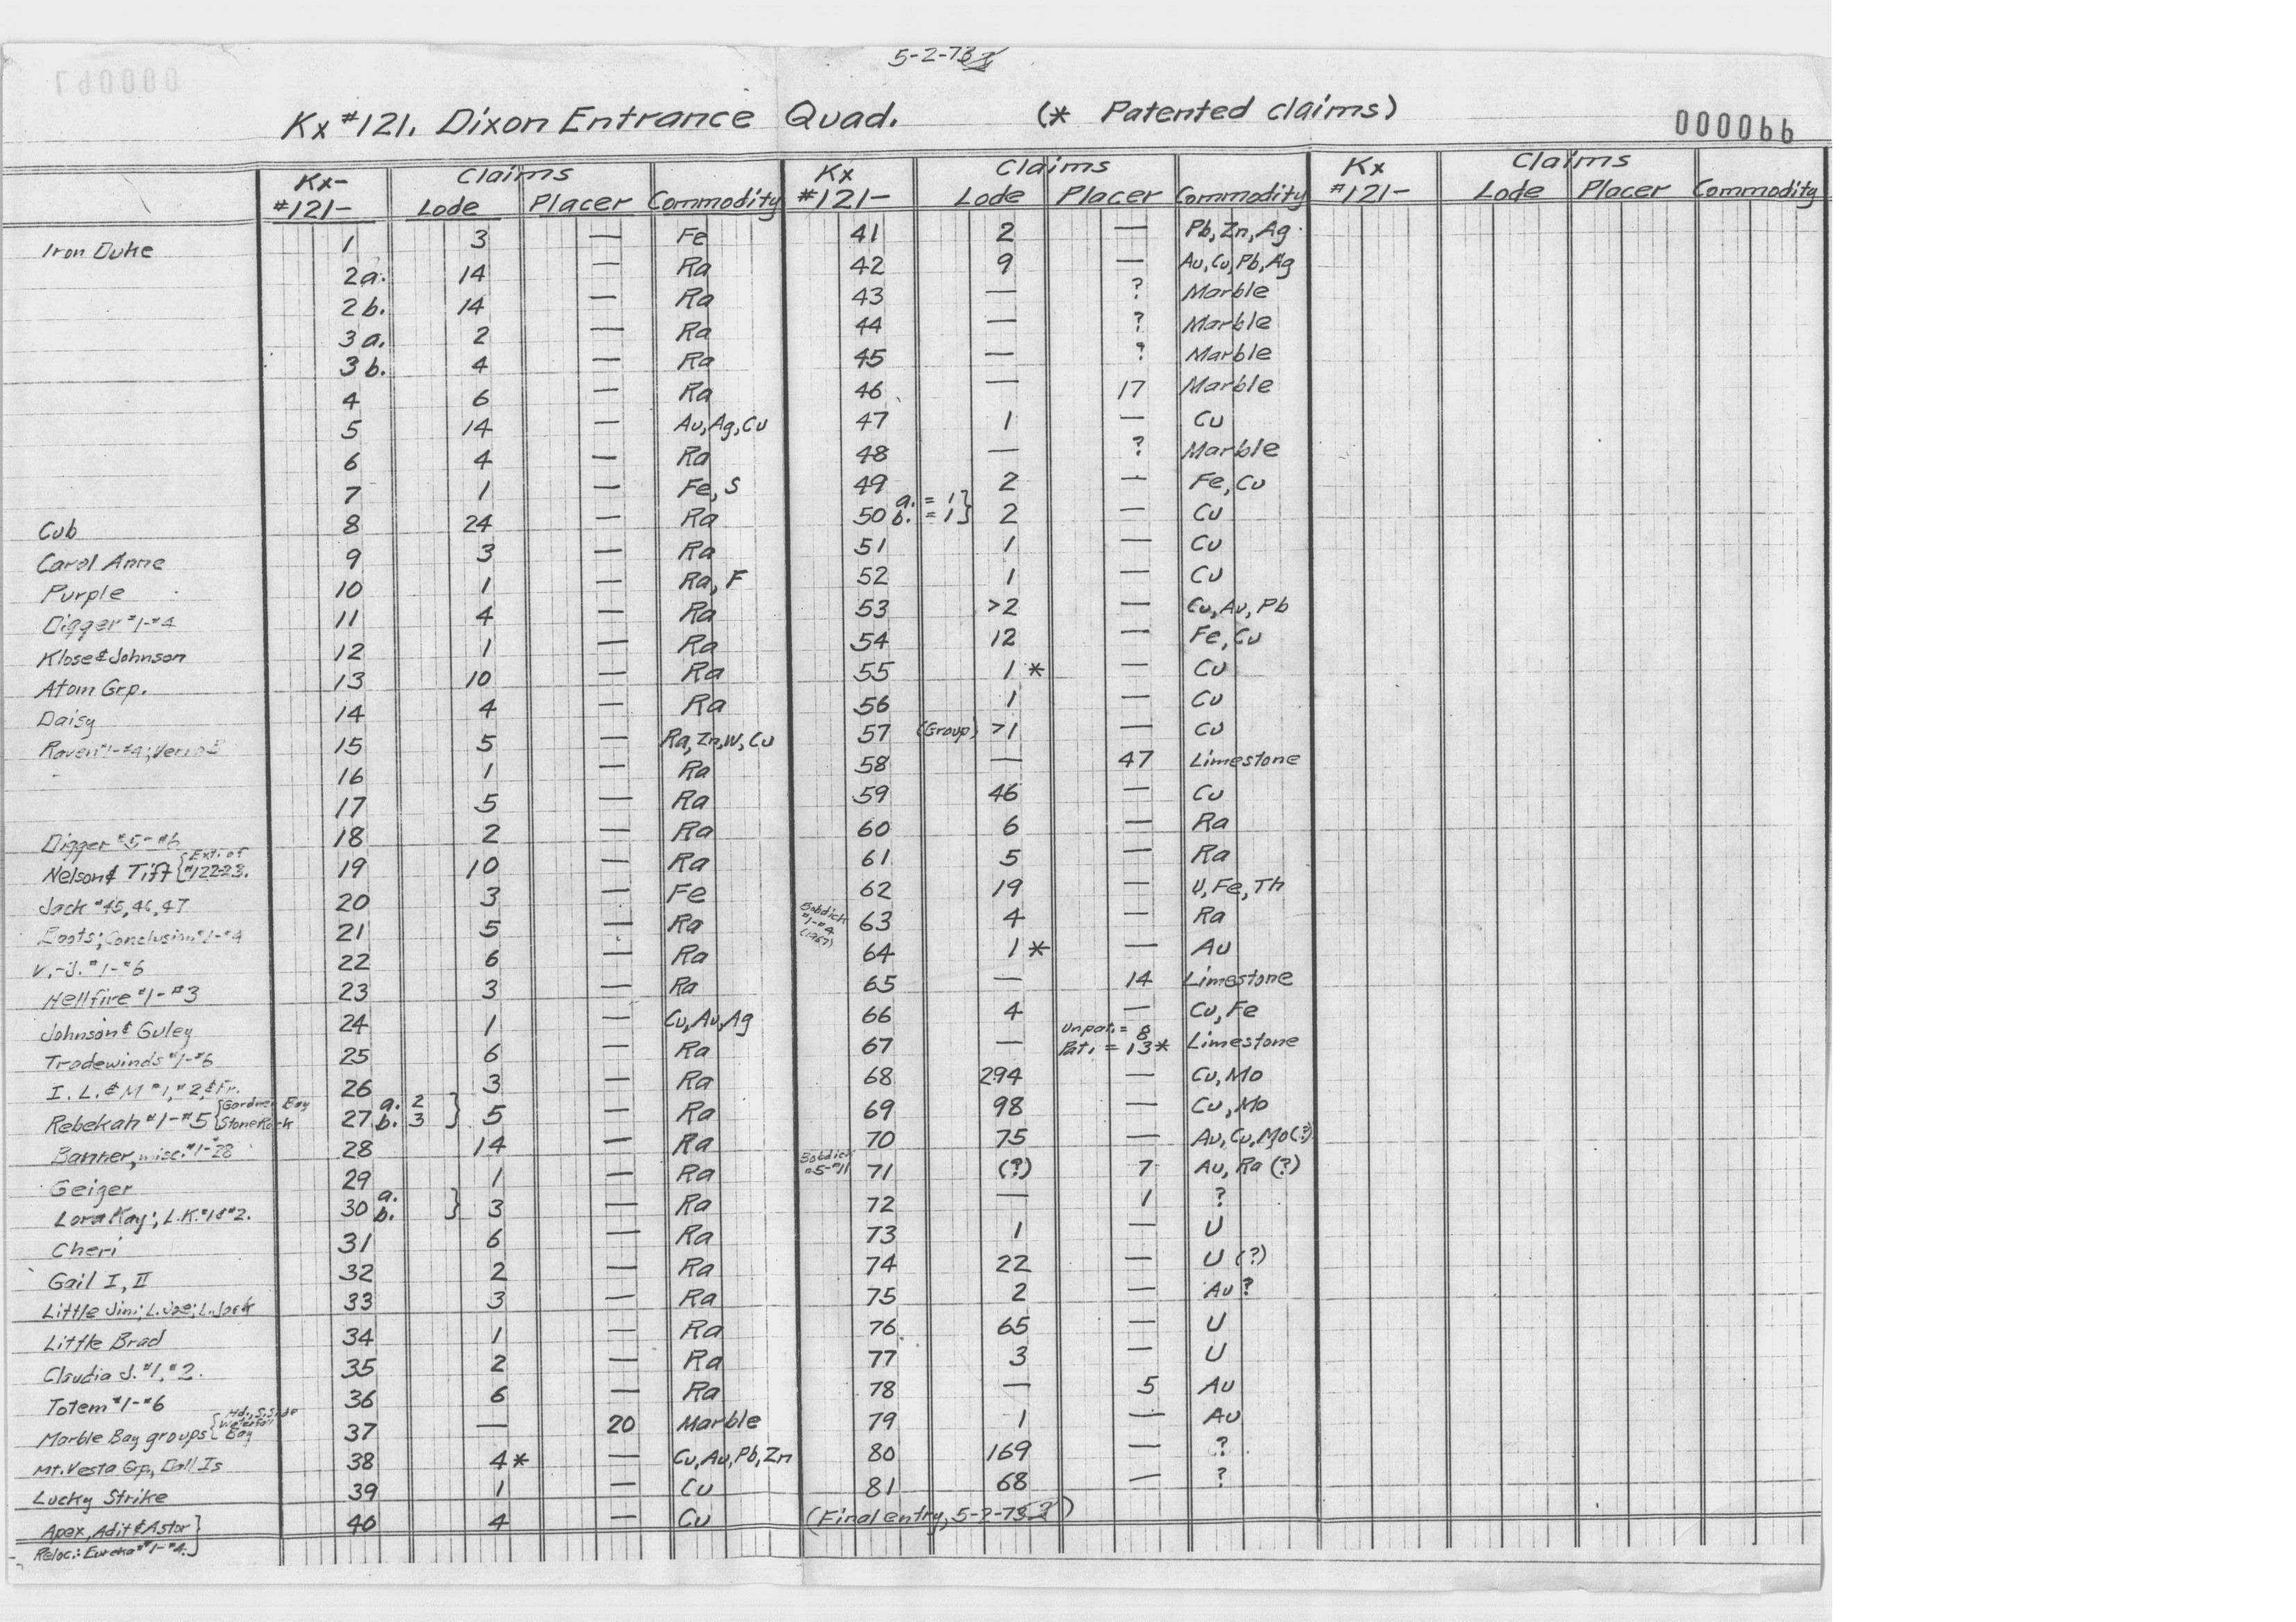 5-2-73
Kx #121. Dixon Entrance Quad. (* Patented claims)
000066
Kx- #121- Claims Lode Placer Commodity Kx #121- Claims Lode Placer Commodity Kx #121- Claims Lode Placer Commodity
Iron Duke 1 3 — Fe 41 2 — Pb, Zn, Ag
2a. 14 — Ra 42 9 — Au, Cu, Pb, Ag
2b. 14 — Ra 43 — ? Marble
3a. 2 — Ra 44 — ? Marble
3b. 4 — Ra 45 — ? Marble
4 6 — Ra 46 — 17 Marble
5 14 — Au, Ag, Cu 47 1 — Cu
6 4 — Ra 48 — ? Marble
7 1 — Fe, S 49 2 — Fe, Cu
Cub 8 24 — Ra 50 a. = 1 b. = 1 } 2 — Cu
Carol Anne 9 3 — Ra 51 1 — Cu
Purple 10 1 — Ra, F 52 1 — Cu
Digger #1-#4 11 4 — Ra 53 >2 — Cu, Au, Pb
Klose & Johnson 12 1 — Ra 54 12 — Fe, Cu
Atom Grp. 13 10 — Ra 55 1 * — Cu
Daisy 14 4 — Ra 56 1 — Cu
Raven #1-#4; 15 5 — Ra, Zn, W, Cu 57 (Group) >1 — Cu
16 1 — Ra 58 — 47 Limestone
17 5 — Ra 59 46 — Cu
Digger #5-#6 18 2 — Ra 60 6 — Ra
Nelson & Tift { Ext. of #122-23. 19 10 — Ra 61 5 — Ra
Jack #45, 46, 47 20 3 — Fe 62 19 — U, Fe, Th
Conclusion #1-#4 21 5 — Ra Bobdick #1-#4 (1957) 63 4 — Ra
V.-J. #1-#6 22 6 — Ra 64 1 * — Au
Hellfire #1-#3 23 3 — Ra 65 — 14 Limestone
Johnson & Guley 24 1 — Cu, Au, Ag 66 4 — Cu, Fe
Tradewinds #1-#6 25 6 — Ra 67 — Unpat. = 8 Pat. = 13* Limestone
I. L. & M #1, #2, & Fr. 26 3 — Ra 68 294 — Cu, Mo
Rebekah #1-#5 { Gardner Bay Stone Rock 27 a. 2 b. 3 } 5 — Ra 69 98 — Cu, Mo
Banner, misc. #1-#28 28 14 — Ra 70 75 — Au, Cu, Mo (?)
Geiger 29 1 — Ra Bobdick #5-#11 71 (?) 7 Au, Ra (?)
Lora Kay; L.K. #1 & #2. 30 a. b. } 3 — Ra 72 — 1 ?
Cheri 31 6 — Ra 73 1 — U
Gail I, II 32 2 — Ra 74 22 — U (?)
Little Jim; L. Joe; L. Jack 33 3 — Ra 75 2 — Au ?
Little Brad 34 1 — Ra 76 65 — U
Claudia J. #1, #2. 35 2 — Ra 77 3 — U
Totem #1-#6 36 6 — Ra 78 — 5 Au
Marble Bay groups { Waterfall Bay 37 — 20 Marble 79 1 — Au
Mt. Vesta Grp, Dall Is 38 4* — Cu, Au, Pb, Zn 80 169 — ?
Lucky Strike 39 1 — Cu 81 68 — ?
Apex, Adit & Astor } 40 4 — Cu (Final entry, 5-2-73)
Reloc.: Eureka #1-#4.